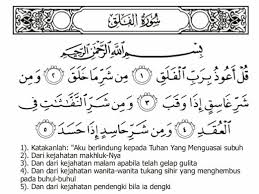 سُورَةُ الْفَلَقِ
بِسْمِ اللَّهِ الرَّحْمَٰنِ الرَّحِيمِ
قُلْ أَعُوذُ بِرَبِّ الْفَلَقِ ١ مِن شَرِّ مَا خَلَقَ ٢ وَمِن
شَرِّ غَاسِقٍ إِذَا وَقَبَ ٣ وَمِن شَرِّ النَّفَّاثَاتِ فِي
الْعُقَدِ ٤ وَمِن شَرِّ حَاسِدٍ إِذَا حَسَدَ ٥
1). Katakanlah: "Aku berlindung kepada Tuhan Yang Menguasai subuh
2). Dan dari kejahatan makhluk-Nya
3). Dan dari kejahatan malam apabila telah gelap gulita
4). Dan dari kejahatan wanita-wanita tukang sihir yang menghembus
pada buhul-buhul
5). Dan dari kejahatan pendengki bila ia dengki